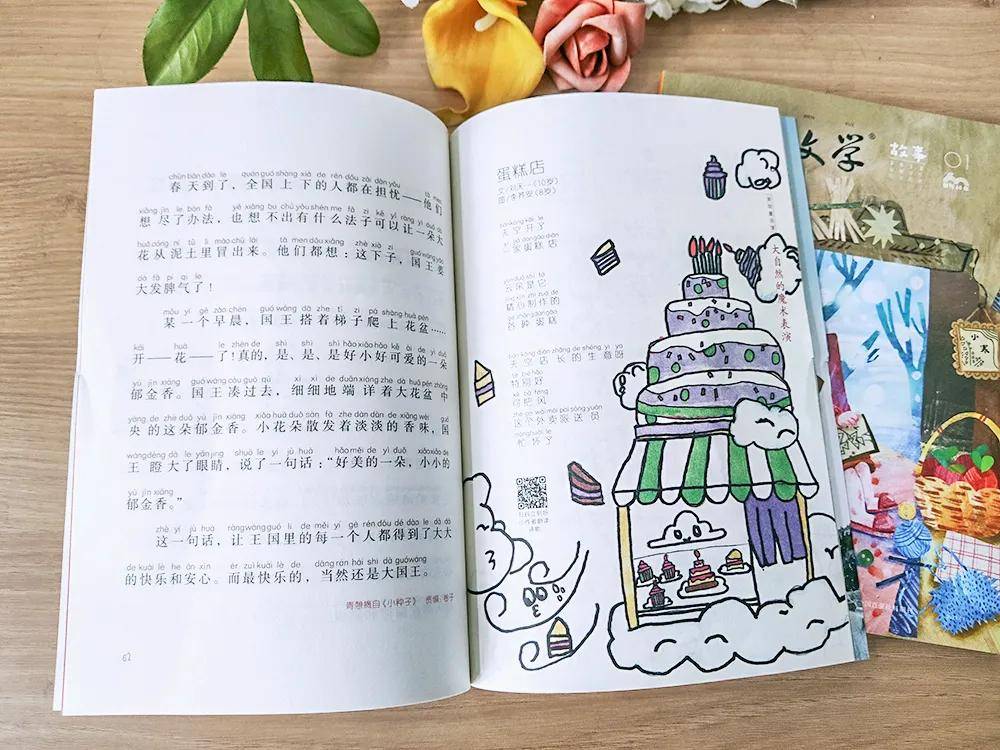 chūn tiān dào le quán guó shàng xià de rén dōu zài dān yōu tā men
春天到了，全国上下的人都在担忧——他们
xiǎng jìn le bàn fǎ yě xiǎng bu chū yǒu shén me fǎ zi kě yǐ ràng yì duǒ dà
想尽了办法，也想不出有什么法子可以让一朵大
huā cóng ní tǔ lǐ mào chū lái tā men dōu xiǎng zhè xià zi guó wáng yào
花从泥土里冒出来。他们都想：这下子，国王要
dà fā pí qi le
大发脾气了！
mǒu yí gè zǎo chén guó wáng dā zhe tī zi pá shàng huā pén
某一个早晨，国王搭着梯子爬上花盆……
kāi huā le zhēn de shì shì shì hǎo xiǎo hǎo kě ài de yì duǒ
开——花——了！真的，是、是、是好小好可爱的一朵
yù jīn xiāng guó wáng còu guò qù xì xì de duān xiáng zhe dà huā pén zhōng
郁金香。国王凑过去，细细地端详着大花盆中
yāng de zhè duǒ yù jīn xiāng xiǎo huā duǒ sàn fā zhe dàn dàn de xiāng wèi guó
央的这朵郁金香。小花朵散发着淡淡的香味，国
wáng dèng dà le yǎn jing shuō le yí jù huà hǎo měi de yì duǒ xiǎo xiǎo de
王瞪大了眼睛，说了一句话：“好美的一朵，小小的
yù jīn xiāng
郁金香。”
zhè yí jù huà ràng wáng guó lǐ de měi yí gè rén dōu dé dào le dà dà
这一句话，让王国里的每一个人都得到了大大
de kuài lè hé ān xīn ér zuì kuài lè de dāng rán hái shi dà guó wáng
的快乐和安心。而最快乐的，当然还是大国王。
62
蛋糕店
天空开了
一家蛋糕店
云朵是它
精心制作的
各种蛋糕
天空店长的生意呀
特别好
可把风
这个外卖派送员
忙坏了
大自然的魔术表演
文学®
故事
01